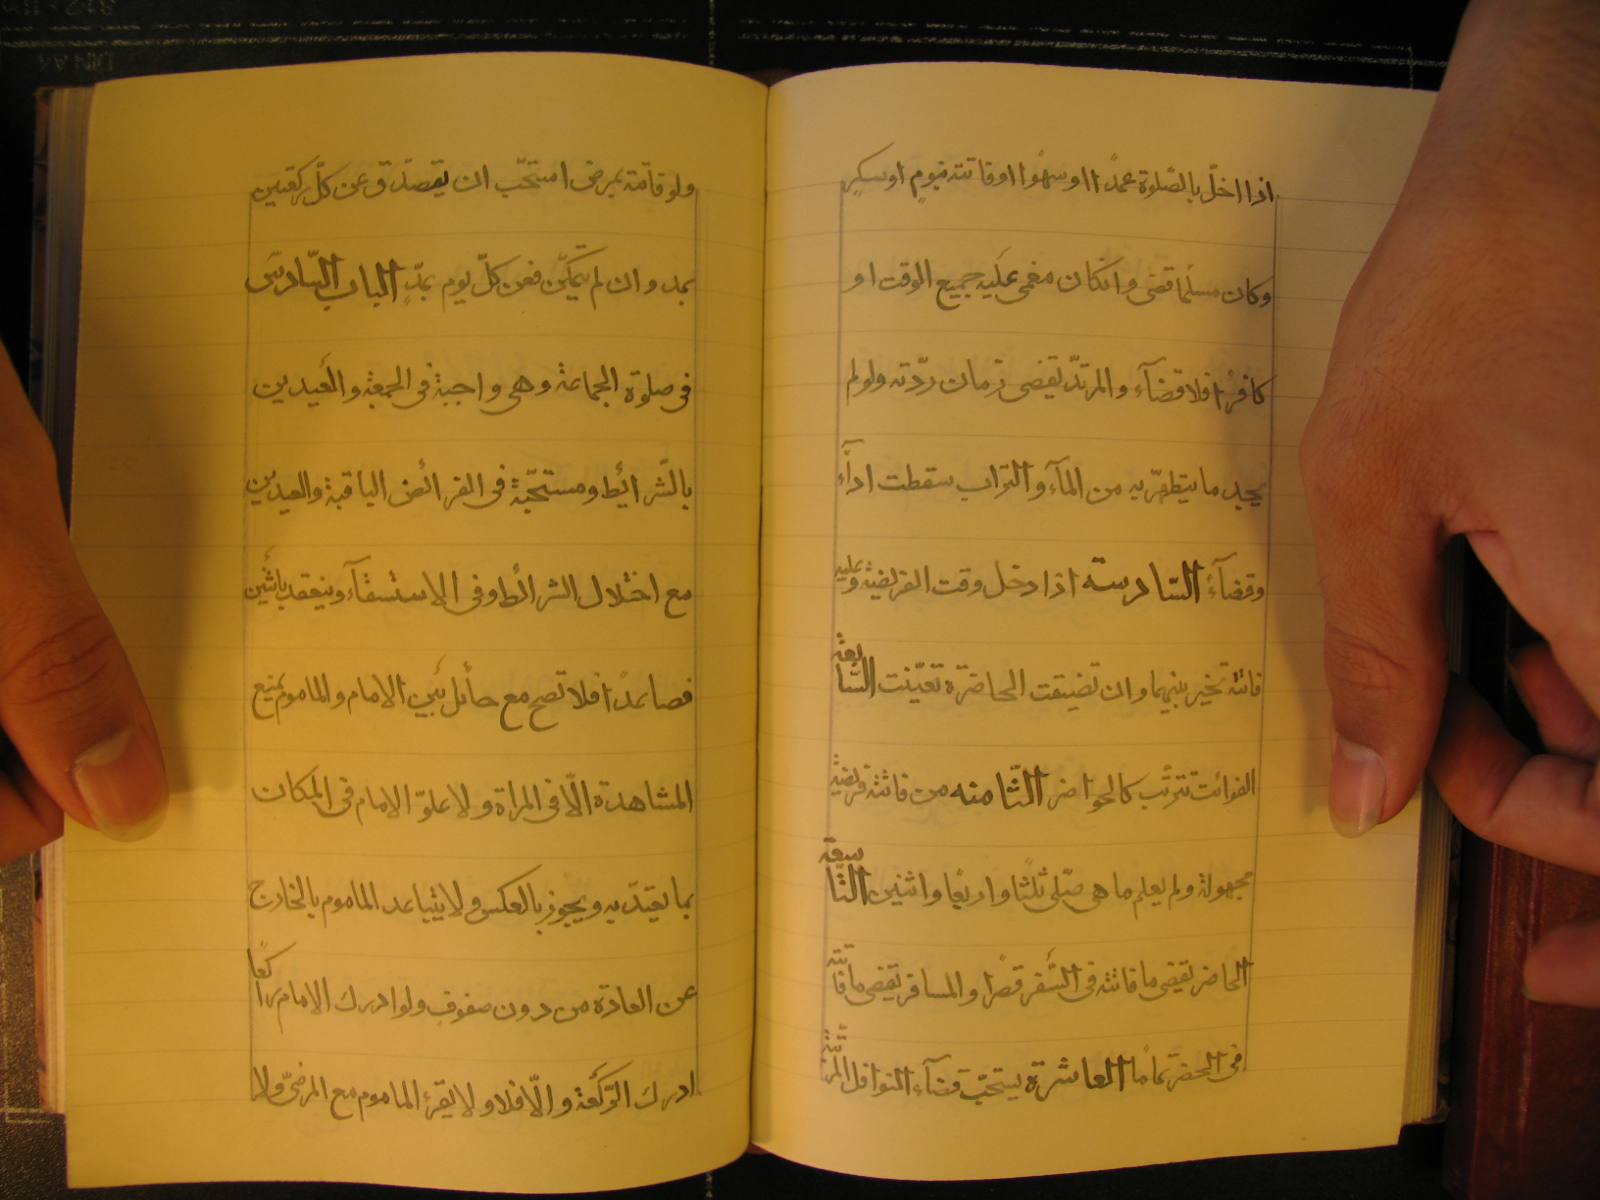 اذا اخلّ بالصّلوة عمدًا اوسهوًا اوفاتته بنومٍ اوسكرٍ
وكان مسلمًا قضى وانكان مغمى عليه جميع الوقت او
كافرًا فلا قضآء والمرتدّ يقضى زمان ردّته ولولم
يجد ما يتطهّر به من المآء والتراب سقطت اداًء
وقضآءً السّادسته اذا دخل وقت الفريضة وعليه
فائتة تخير بينهما وان تضيقت الحاضرة تعيّنت السّابعة
الفوائت تترتّب كالحواضر الثّامنه من فاتته فريضة
مجهولة ولم يعلم ما هى صلّى ثلثًا واربعًا واثنين التّاسعة
الحاضر يقضى ما فاتته فى السّفر قصرًا والمسافر يقضى ما فاتته
فى الحضر تمامًا العاشرة يستحبّ قضآء النوافل المرتّبة
ولو فاتته بمرض استحّب ان يتصدّق عن كلّ ركعتين
بمد وان لم يتمكّن فعن كلّ يوم بمدٍّ الباب السّادس
فى صلوة الجماعة وهى واجبة فى الجمعة والعيدين
بالشّرائط ومستحبّة فى الفرائض الباقية والعيدين
مع اختلال الشرائط وفى الاستسقآء وينعقد باثنين
فصاعدًا فلا تصح مع حائل بين الامام والماموم يمنع
المشاهدة الّا فى المراة ولا علوّ الامام فى المكان
بما يعتدّ به ويجوز بالعكس ولا يتباعد الماموم بالخارج
عن العادة من دون صفوف ولوادرك الامام راكعًا
ادرك الرّكعة والّا فلا ولا يقرء الماموم مع المرضىّ ولا